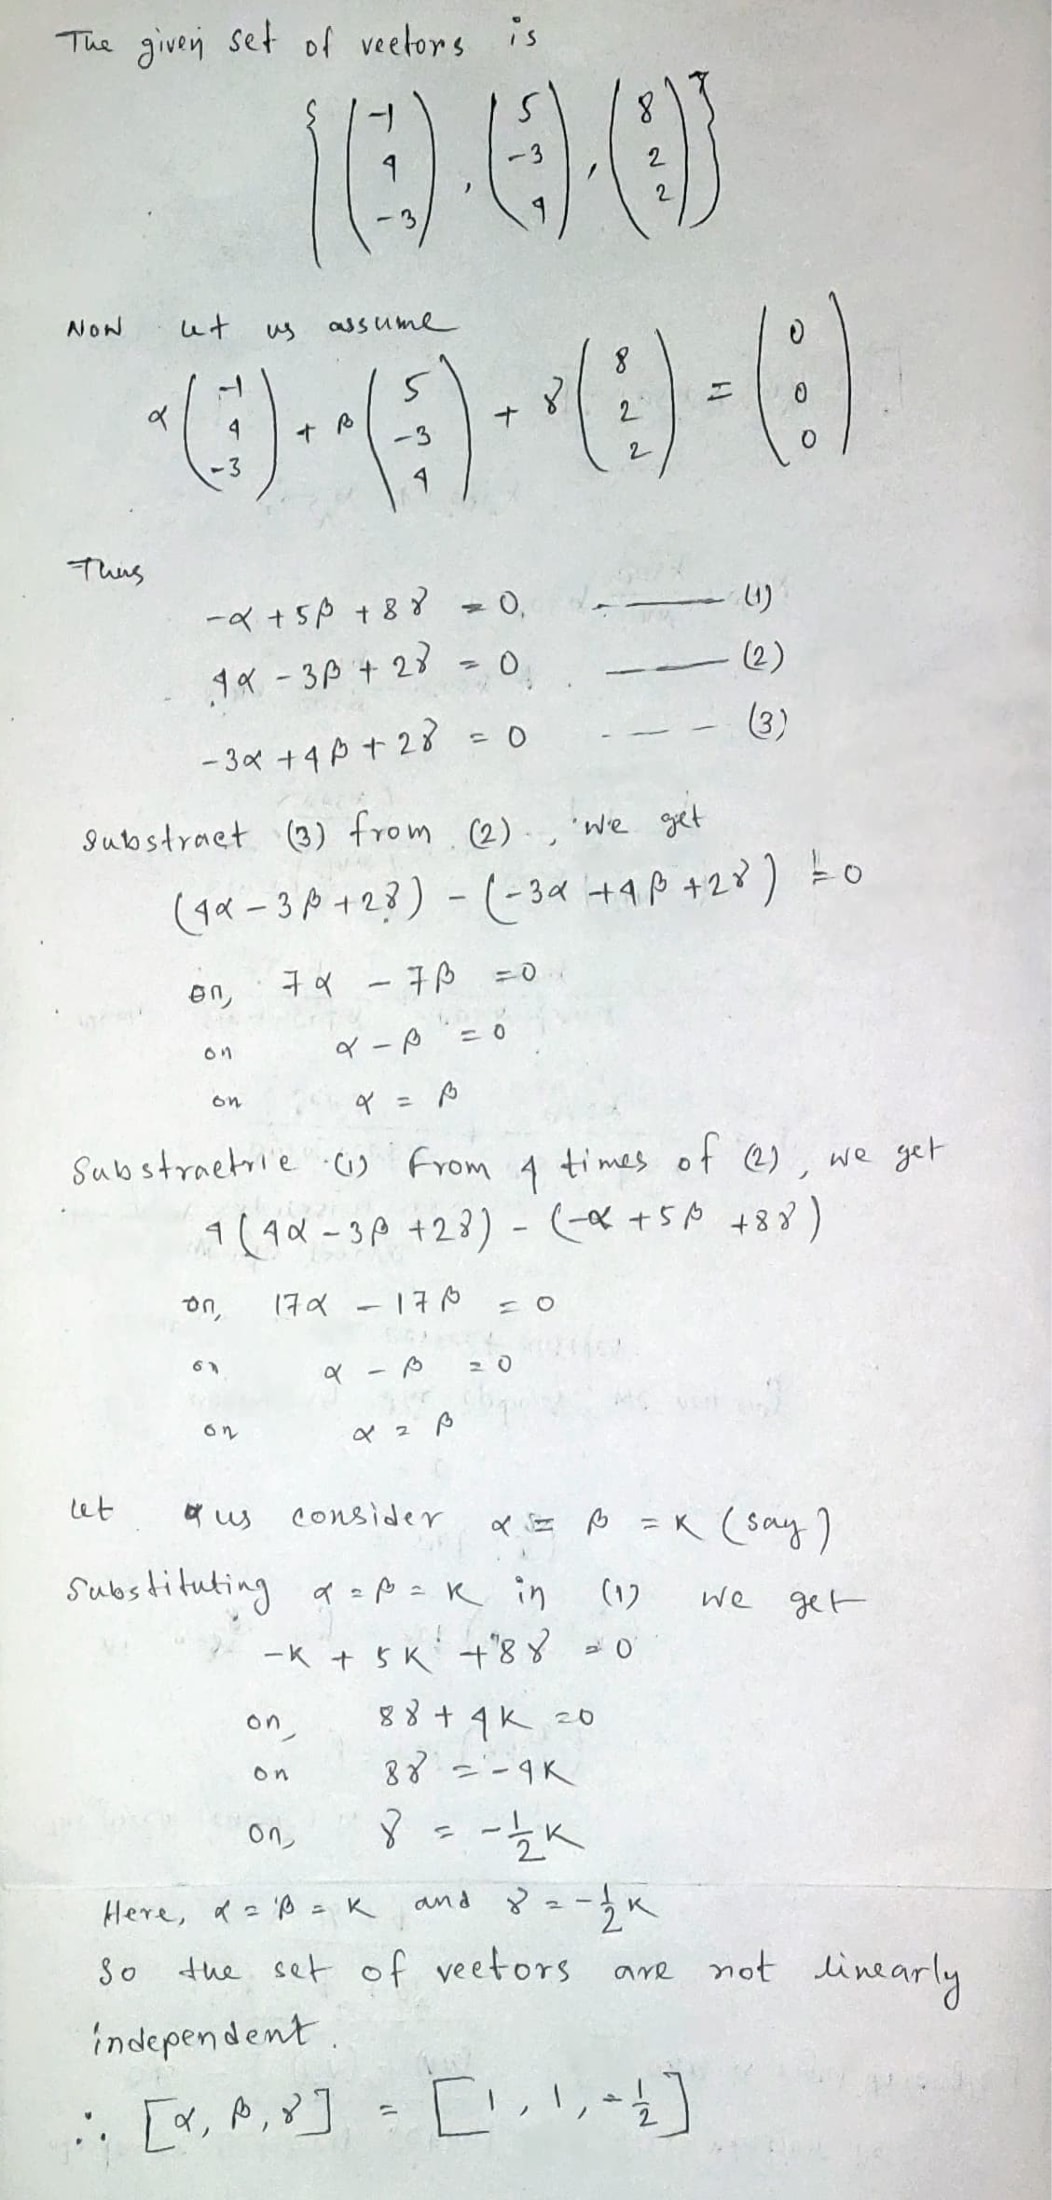 The given set of vectors is
{(-1 4 -3), (5 -3 4), (8 2 2)}
Now let us assume
α(-1 4 -3) + β(5 -3 4) + γ(8 2 2) = (0 0 0)
Thus
-α + 5β + 8γ = 0, —— (1)
4α - 3β + 2γ = 0, —— (2)
-3α + 4β + 2γ = 0 --- (3)
Substract (3) from (2), we get
(4α - 3β + 2γ) - (-3α + 4β + 2γ) = 0
or, 7α - 7β = 0
or α - β = 0
or α = β
Substractrie (1) from 4 times of (2), we get
4(4α - 3β + 2γ) - (-α + 5β + 8γ)
or, 17α - 17β = 0
or α - β = 0
or α = β
Let us consider α = β = K (say)
Substituting α = β = K in (1) we get
-K + 5K + 8γ = 0
or, 8γ + 4K = 0
or 8γ = -4K
or, γ = -1/2 K
Here, α = β = K and γ = -1/2 K
So the set of vectors are not linearly
independent.
∴ [α, β, γ] = [1, 1, -1/2]